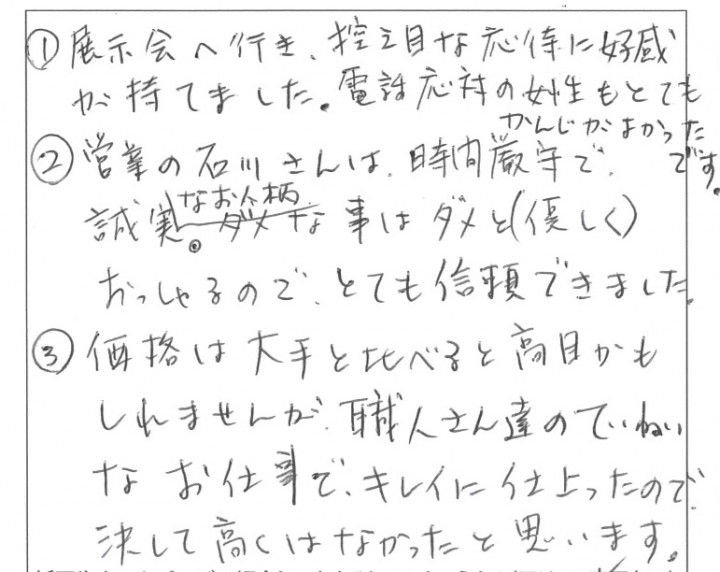 ① 展示会へ行き、控え目な応待に好感
が持てました。電話応対の女性もとても
かんじがよかった
です。
② 営業の石川さんは、時間厳守で、
誠実なお人柄。ダメな事はダメと(優しく)
おっしゃるので、とても信頼できました。
③ 価格は大手と比べると高目かも
しれませんが、職人さん達のていねい
なお仕事で、キレイに仕上ったので、
決して高くはなかったと思います。